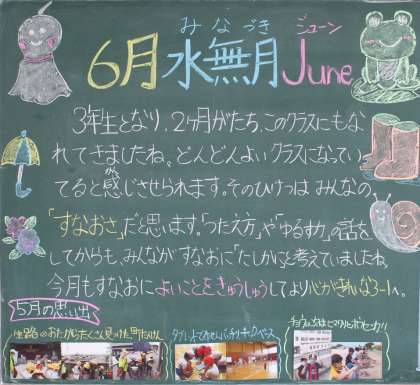 みなづき ジューン
6月 水無月 June
3年生となり、2ヶ月がたち、このクラスにもな
れてきましたね。どんどんよいクラスになってい
てると感じさせられます。そのひけつは みんなの、
「すなおさ」だと思います。「つたえ方」や「ゆるすわ」の話を
してからも、みんなが「すなおに「たしかに」と考えていましたね。
今月もすなおに よいことをきゅうしゅうしてより心がきれいな3-1へ。
5月の思い出